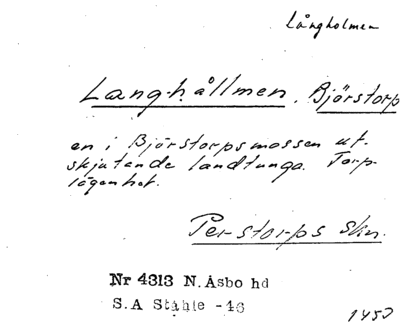 Långholmen
Langhållmen, Björstorp
en i Björstorpsmossen ut-
skjutande landtunga. Torp-
lägenhet.
Perstorps skn.
Nr 4313 N. Åsbo hd
S.A Ståhle -46
1450